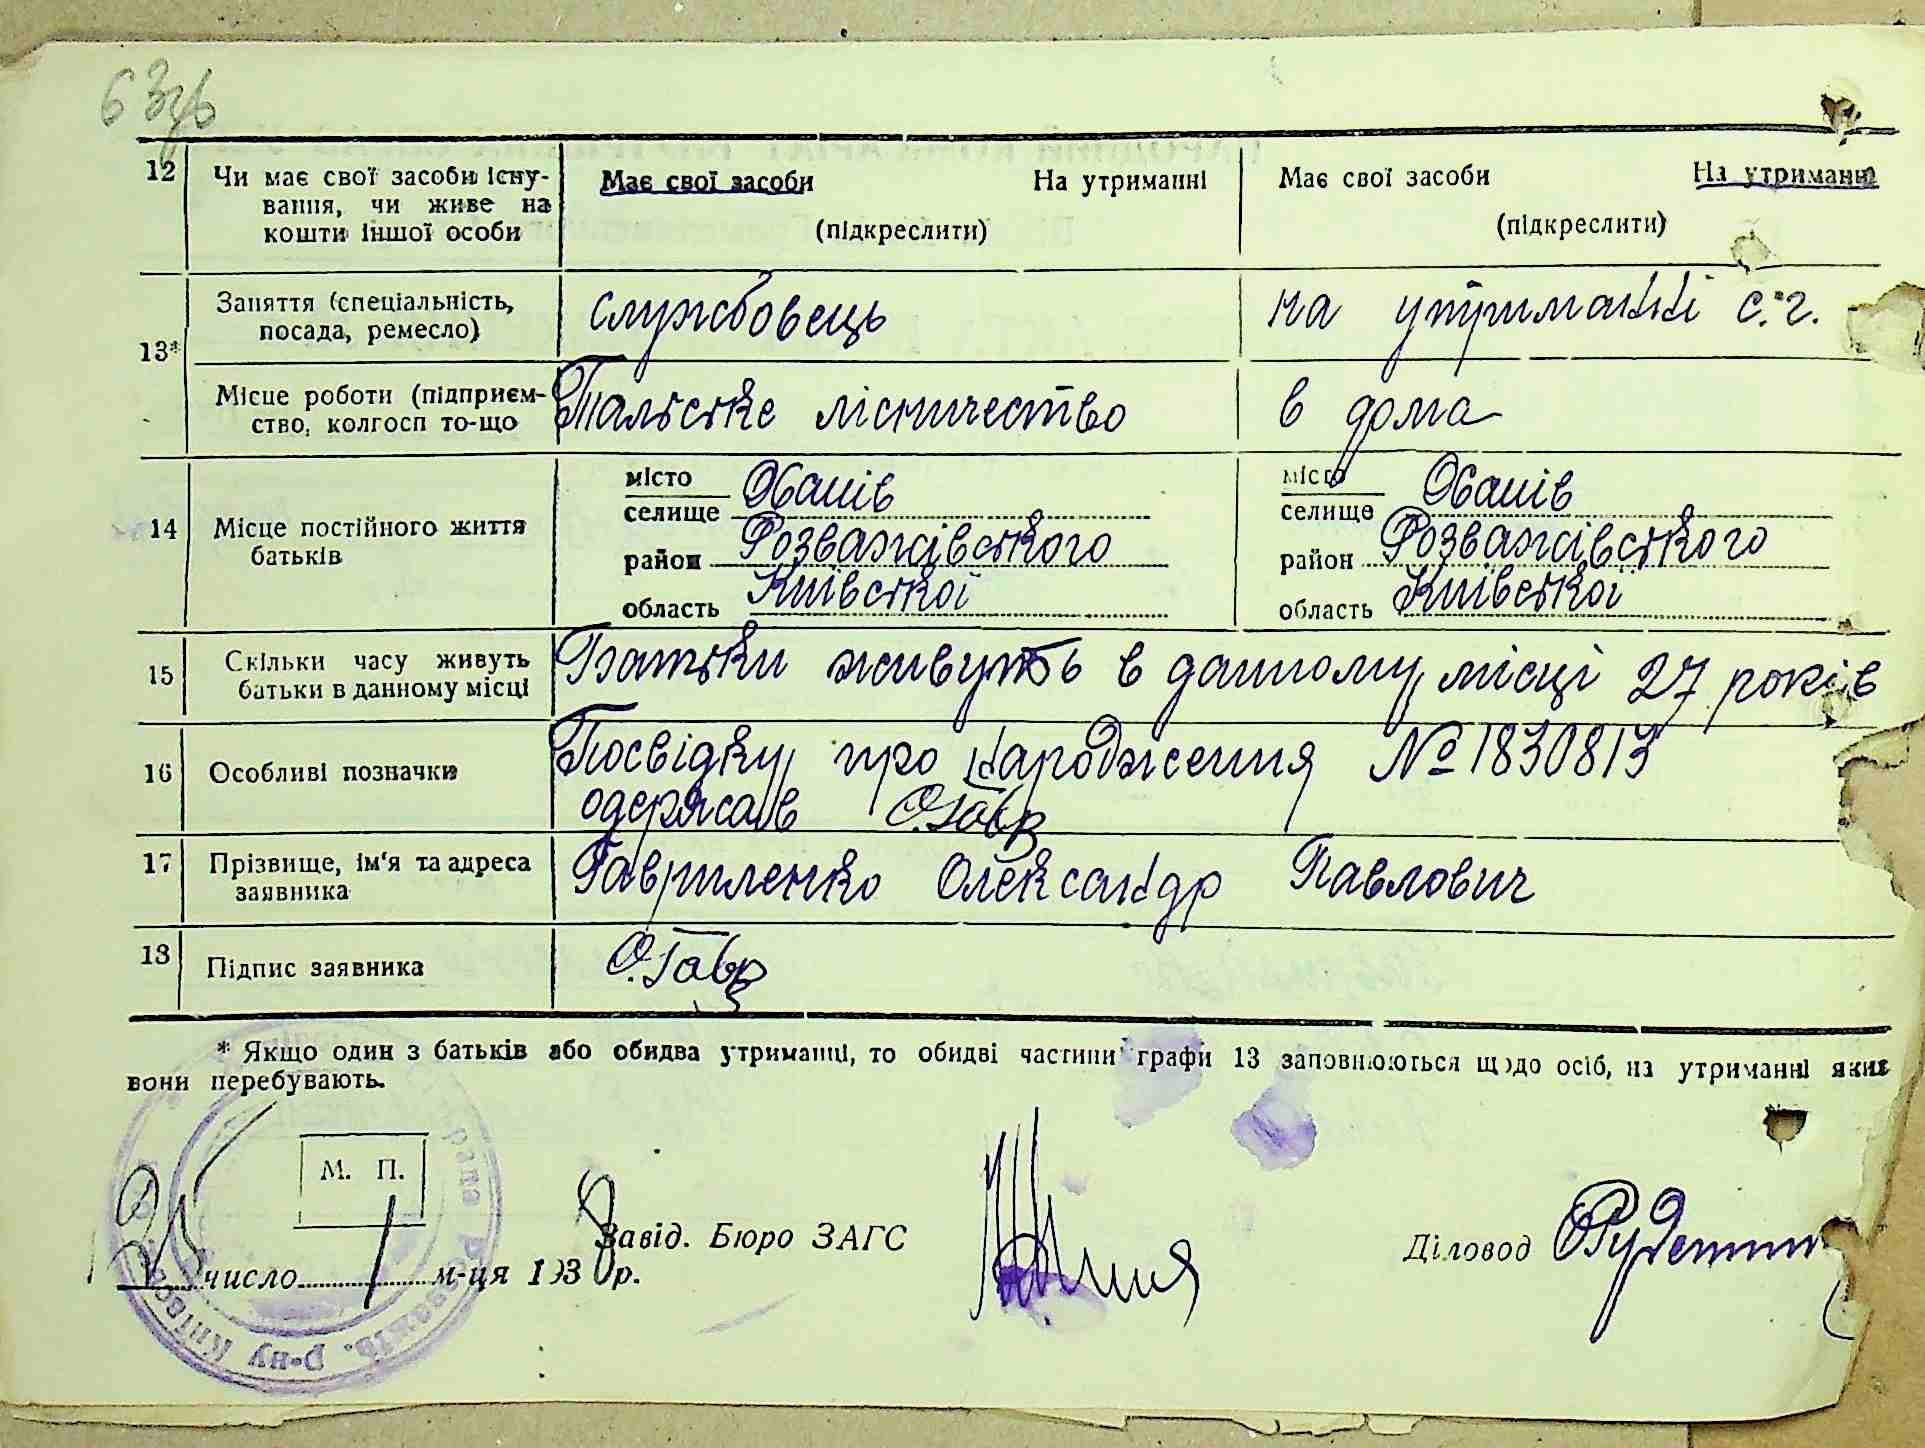 63зв
12 Чи має свої засоби існу- Має свої засоби На утриманні Має свої засоби На утриманні
вання, чи живе на
кошти іншої особи (підкреслити) (підкреслити)
13* Заняття (спеціальність, службовець на утриманні с.г.
посада, ремесло)
Місце роботи (підприєм- Тальське лісничество в дома
ство, колгосп то-що
14 Місце постійного життя
батьків
місто Обанів місто Обанів
селище селище
район Розважівського район Розважівського
область Київської область Київської
15 Скільки часу живуть Батьки живуть в данному місці 27 років
батьки в данному місці
16 Особливі позначки Посвідку про народження № 1830813
одержав О.Гавр
17 Прізвище, ім'я та адреса Гавриленко Олександр Павлович
заявника
18 Підпис заявника О.Гавр
* Якщо один з батьків або обидва утриманці, то обидві частини графи 13 заповнюються щодо осіб, на утриманні яких
вони перебувають.
М. П.
Завід. Бюро ЗАГС Діловод
25 число 1 м-ця 1938 р.
Розважів. р-ну Київської